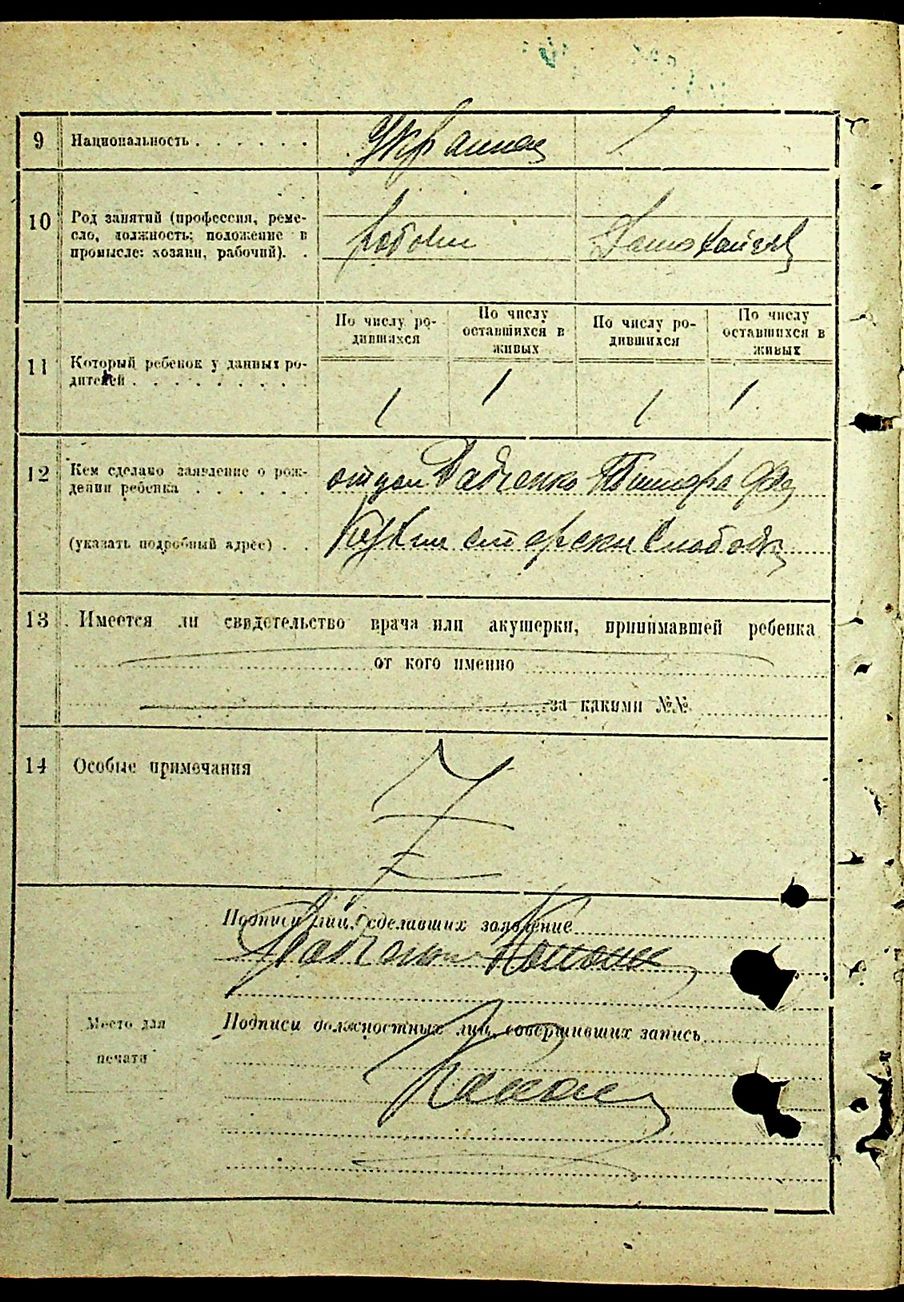 9 Национальность . . . . . . Украинец
10 Род занятий (профессия, реме-
сло, должность; положение в
промысле: хозяин, рабочий). . рабочий Домохозяйка
По числу ро-
дившихся
По числу
оставшихся в
живых
По числу ро-
дившихся
По числу
оставшихся в
живых
11 Который ребенок у данных ро-
дителей . . . . . . . . . 1 1 1 1
12 Кем сделано заявление о рож-
дении ребенка . . . . . . отцом
(указать подробный адрес) . .
13 Имеется ли свидетельство врача или акушерки, принимавшей ребенка
от кого именно
за какими №№
14 Особые примечания
Подписи лиц, сделавших заявление
Подписи должностных лиц, совершивших запись
Место для
печати